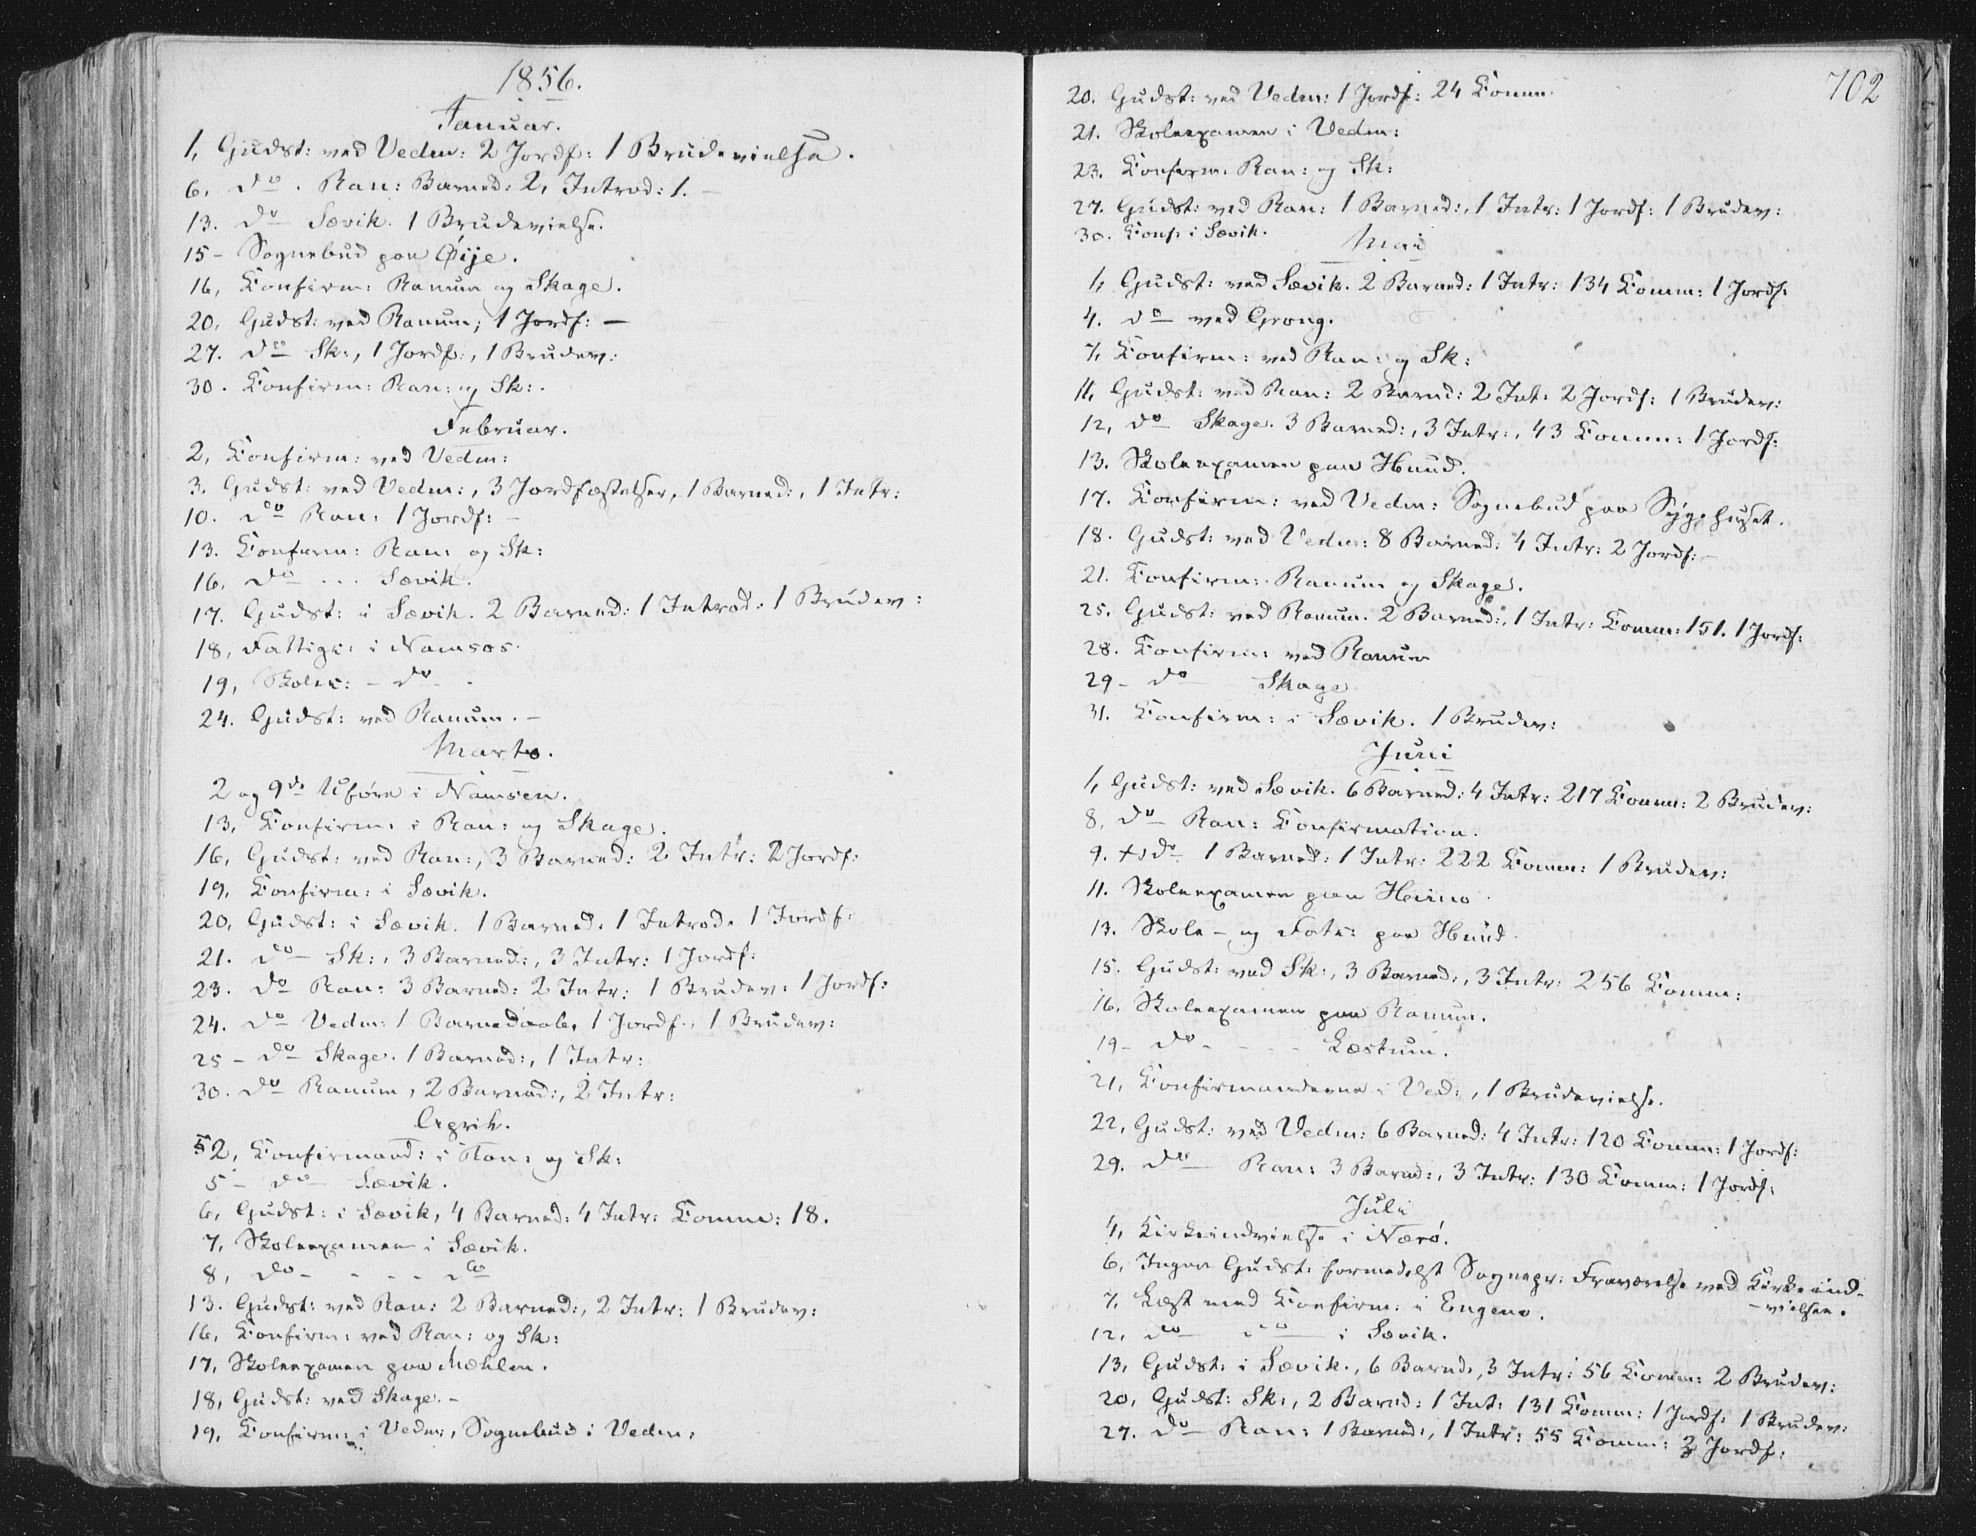 1856.
Januar.
1, Gudst: ved Vedm: 2 Jordf: 1 Brudevielse.
6, do. Ran: Barned: 2, Introd: 1. —
13. do— Sævik. 1 Brudevielse.
15 - Sognebud paa Øije.
16, Confirm: Ranum og Skage.
20, Gudst: ved Ranum, 1 Jordf: —
27. do— Sk:, 1 Jordf:, 1 Brudev:
30. Confirm: Ran: og Sk:.
Februar.
2, Confirm: ved Vedm:
3. Gudst: ved Vedm:, 3 Jordfæstelser, 1 Barned:, 1 Intr:
10. do Ran: 1 Jordf: —
13. Confirm: Ran: og Sk:
16, do ... Sævik.
17. Gudst: i Sævik. 2 Barned: 1 Introd: 1 Brudev:
18, Fattigc: i Namsos.
19, Skolec: - do -
24. Gudst: ved Ranum. —
Marts.
2 og 9de Uføre i Namsen.
13, Confirm: i Ran: og Skage.
16, Gudst: ved Ran:, 3 Barned: 2 Intr: 2 Jordf:
19, Confirm: i Sævik.
20, Gudst: i Sævik. 1 Barned. 1 Introd. 1 Jordf:
21. do— Sk:, 3 Barned:, 3 Intr: 1 Jordf:
23. do Ran: 3 Barned: 2 Intr: 1 Brudev: 1 Jordf:
24. do Vedm: 1 Barnedaab, 1 Jordf., 1 Brudev:
25 - do Skage. 1 Barned:, 1 Intr:
30. do Ranum, 2 Barned:, 2 Intr:
April.
2, Confirmand: i Ran: og Sk:
5 - do Sævik.
6, Gudst: i Sævik, 4 Barned: 4 Intr: Comm: 18.
7, Skoleexamen i Sævik.
8, do - - - - do
13. Gudst: ved Ran: 2 Barned:, 2 Intr: 1 Brudev:
16, Confirm: ved Ran: og Sk:
17, Skoleexamen paa Mæhlen.
18, Gudst: ved Skage. -
19, Confirm: i Vedm:, Sognebud i Vedm:
702
20. Gudst: ved Vedm: 1 Jordf: 24 Comm.
21. Skoleexamen i Vedm:
23. Confirm. Ran: og Sk:
27. Gudst: ved Ran: 1 Barned:, 1 Intr: 1 Jordf: 1 Brudev:
30. Conf: i Sævik.
Mai
1, Gudst: ved Sævik. 2 Barned: 1 Intr: 134 Comm: 1 Jordf:
4. do ved Grong.
7, Confirm: ved Ran: og Sk:
11, Gudst: ved Ran: 2 Barned: 2 Int: 2 Jordf: 1 Brudev:
12, do Skage. 3 Barned:, 3 Intr:, 43 Comm: 1 Jordf:
13. Skoleexamen paa Hunnd.
17. Confirm: ved Vedm: Sognebud paa Sygehuset.
18. Gudst: ved Vedm: 8 Barned: 4 Intr: 2 Jordf: —
21. Confirm: Ranum og Skage.
25. Gudst: ved Ranum. 2 Barned:, 1 Intr: Comm: 151. 1 Jordf:
28. Confirm: ved Ranum
29 - do Skage
31. Confirm: i Sævik. 1 Brudev:
Juni
1, Gudst: ved Sævik. 6 Barned: 4 Intr: 217 Comm: 2 Brudev:
8. do Ran: Confirmation.
9. do 1 Barned: 1 Intr: 222 Comm: 1 Brudev:
11. Skoleexamen paa
13. Skole - og Fatt: paa Hunnd.
15. Gudst: ved Sk:, 3 Barned:, 3 Intr: 256 Comm:
16. Skoleexamen paa Ranum.
19 - do - - - - Læstum.
21, Confirmanderne i Ved:, 1 Brudevielse.
22, Gudst: ved Vedm: 6 Barned: 4 Intr: 120 Comm: 1 Jordf:
29. do Ran: 3 Barned:, 3 Intr: 130 Comm: 1 Jordf:
Juli
4, Kirkeindvielse i Nærö.
6, Ingen Gudst: formedelst Sognepr: Fraværelse ved Kirkeind-
-vielsen.
7, Læst med Confirm: i Engene.
12, do do i Sævik.
13, Gudst: i Sævik., 6 Barned:, 3 Intr: 56 Comm: 2 Brudev:
20, Gudst: Sk:, 2 Barned: 1 Int: 131 Comm: 1 Jordf: 1 Brudev:
27. do Ran: 1 Barned:, 1 Intr: 55 Comm: 2 Jordf: